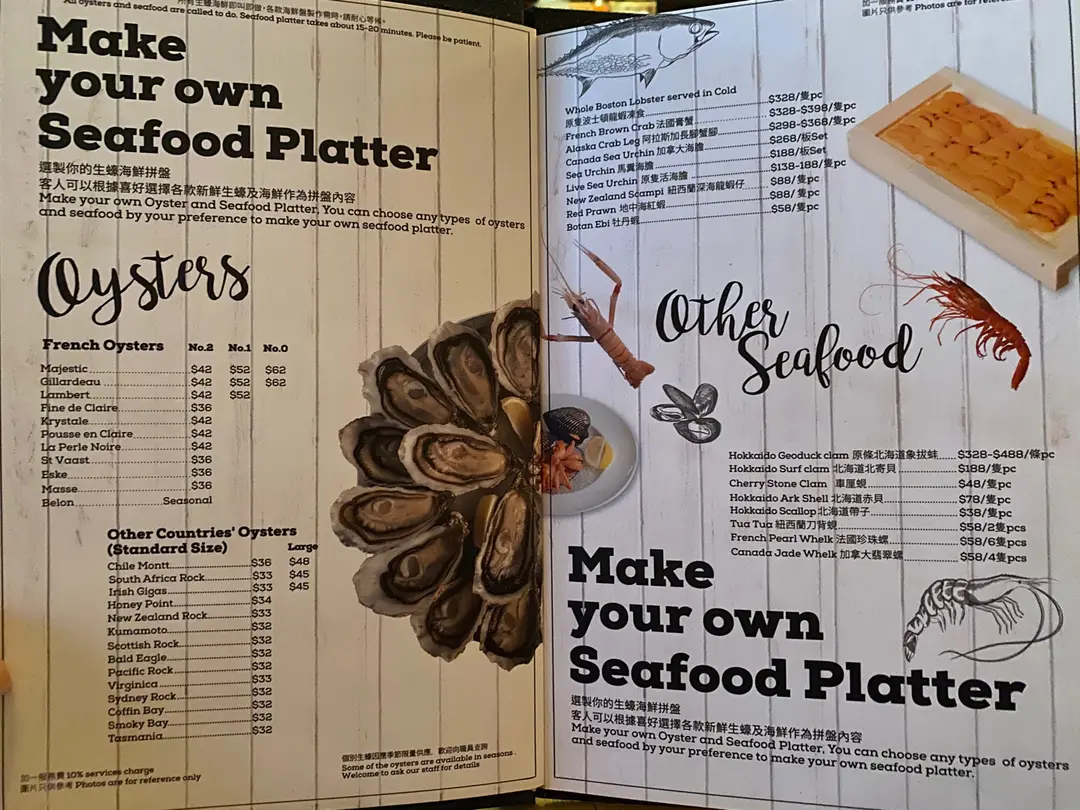 所有生蠔海鮮即叫即做,各款海鮮盤製作需時,請耐心等候。
All oysters and seafood are called to do. Seafood platter takes about 15-20 minutes. Please be patient.
Make
your own
Seafood Platter
選製你的生蠔海鮮拼盤
客人可以根據喜好選擇各款新鮮生蠔及海鮮作為拼盤內容
Make your own Oyster and Seafood Platter, You can choose any types of oysters
and seafood by your preference to make your own seafood platter.
Oysters
French Oysters No.2 No.1 No.0
Majestic $42 $52 $62
Gillardeau $42 $52 $62
Lambert $42 $52
Fine de Claire $36
Krystale $42
Pousse en Claire $42
La Perle Noire $42
St Vaast $36
Eske $36
Masse $36
Belon Seasonal
Other Countries' Oysters
(Standard Size) Large
Chile Montt $36 $48
South Africa Rock $33 $45
Irish Gigas $33 $45
Honey Point $34
New Zealand Rock $33
Kumamoto $32
Scottish Rock $32
Bald Eagle $32
Pacific Rock $32
Virginica $33
Sydney Rock $32
Coffin Bay $32
Smoky Bay $32
Tasmania $32
個別生蠔因應季節限量供應，歡迎向職員查詢
Some of the oysters are available in seasons.
Welcome to ask our staff for details
加一服務費 10% services charge
圖片只供參考 Photos are for reference only
加一服務費
圖片只供參考 Photos are for
Whole Boston Lobster served in Cold
原隻波士頓龍蝦凍食 $328/隻pc
French Brown Crab 法國膏蟹 $328-$398/隻pc
Alaska Crab Leg 阿拉斯加長腳蟹腳 $298-$368/隻pc
Canada Sea Urchin 加拿大海膽 $268/板Set
Sea Urchin 馬糞海膽 $188/板Set
Live Sea Urchin 原隻活海膽 $138-188/隻pc
New Zealand Scampi 紐西蘭深海龍蝦仔 $88/隻pc
Red Prawn 地中海紅蝦 $88/隻pc
Botan Ebi 牡丹蝦 $58/隻pc
Other
Seafood
Hokkaido Geoduck clam 原條北海道象拔蚌 $328-$488/條pc
Hokkaido Surf clam 北海道北寄貝 $188/隻pc
Cherry Stone Clam 車厘蜆 $48/隻pc
Hokkaido Ark Shell 北海道赤貝 $78/隻pc
Hokkaido Scallop 北海道帶子 $38/隻pc
Tua Tua 紐西蘭刀背蜆 $58/2隻pcs
French Pearl Whelk 法國珍珠螺 $58/6隻pcs
Canada Jade Whelk 加拿大翡翠螺 $58/4隻pcs
Make
your own
Seafood Platter
選製你的生蠔海鮮拼盤
客人可以根據喜好選擇各款新鮮生蠔及海鮮作為拼盤內容
Make your own Oyster and Seafood Platter, You can choose any types of oysters
and seafood by your preference to make your own seafood platter.